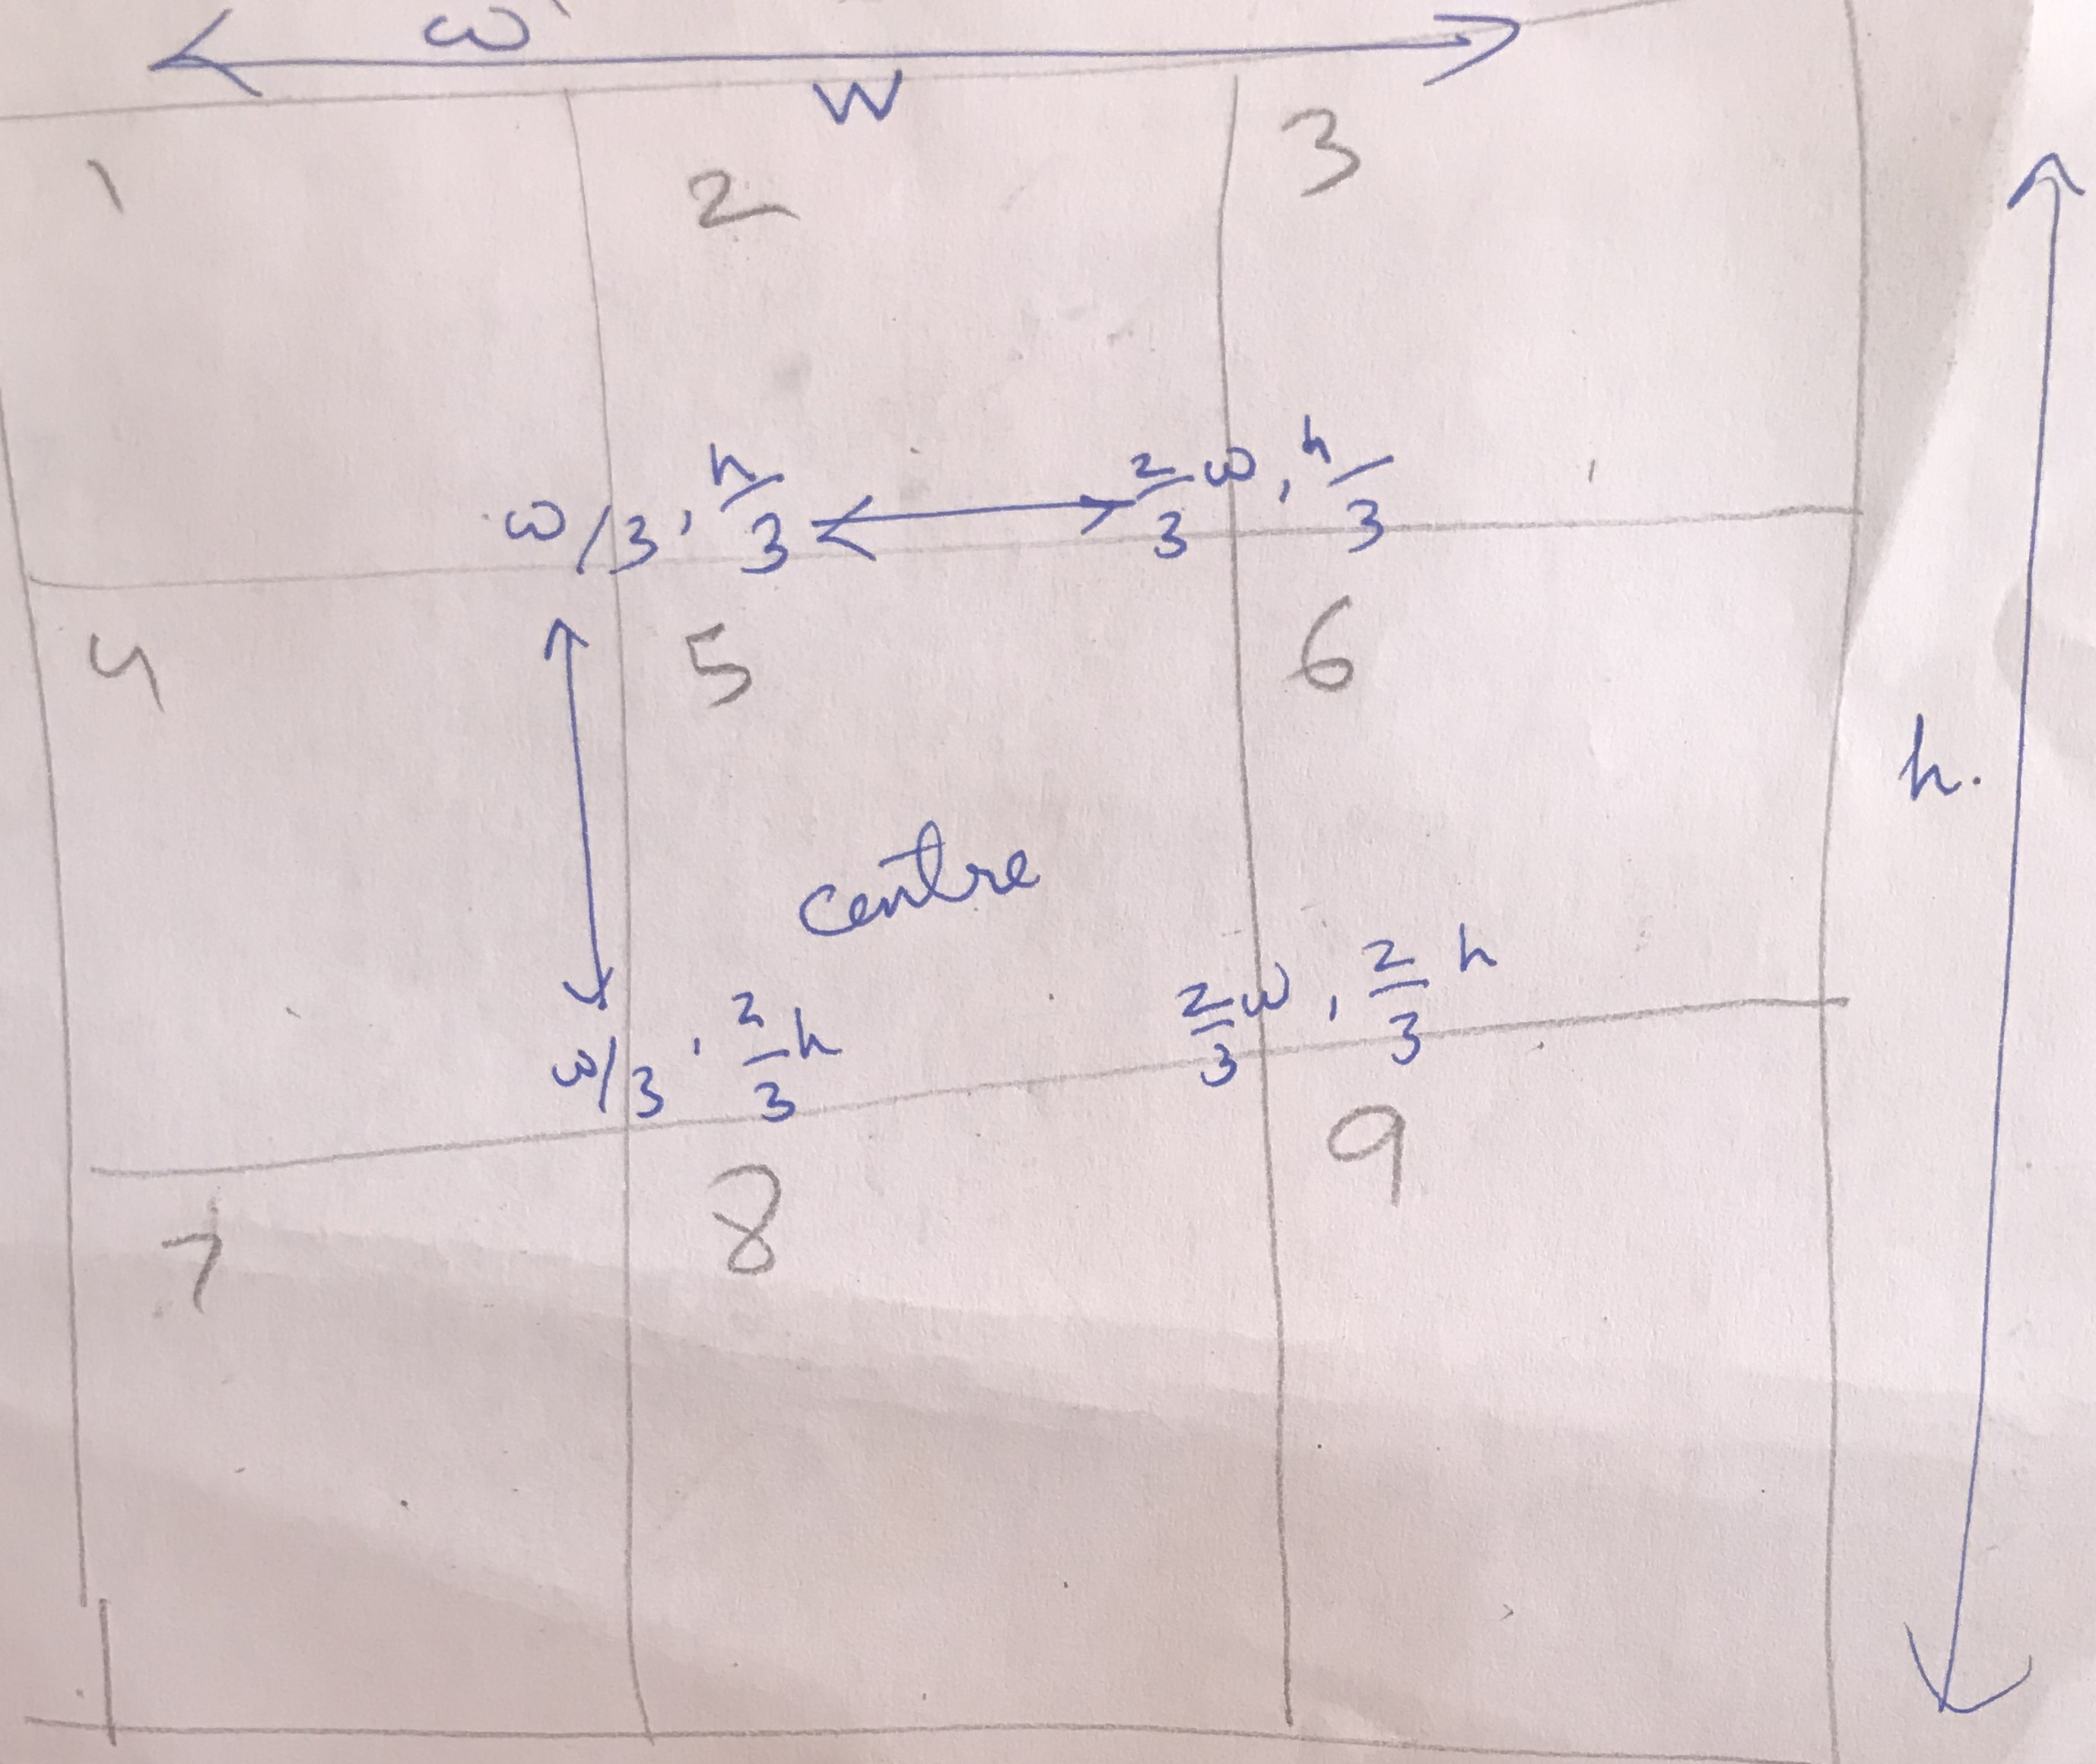 w
W
1 2 3
w/3, h/3 2/3 w, h/3
4 5 6
h.
centre
w/3, 2/3 h 2/3 w, 2/3 h
7 8 9